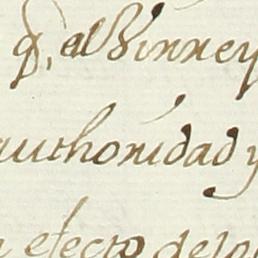 q̃, al Virrey
authoridad y
efecto delo